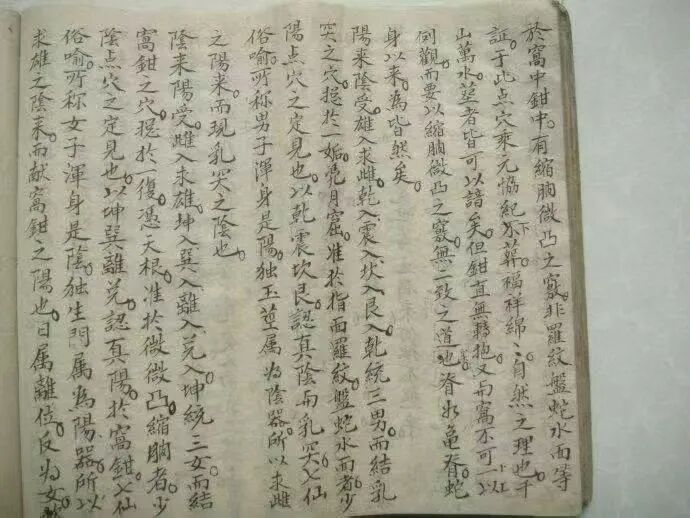 於窩中鉗中。有縮胸微凸之竅。非羅紋盤蛇水面等
証。于此点穴乘元恊紀下不葬。福祥綿〻。自然之理也。千
山萬水。莖者皆可以諳矣。但鉗直無轉抱。又与窩不可一以
例觀。而要以縮胸微凸之竅。無二致之道也。脊如龜脊蛇
身以来。為皆然矣。
陽来陰受。雄入求雌。乾入震入坎入艮入乾統三男。而結乳
突之穴。揔於一姤。凭月窟。准於指面羅紋盤蛇水面者。少
陽点穴之定見也。以乾震坎艮。認真陰於乳突。仙
俗喻。所称男子渾身是陽。独玉莖属為陰器。所以求雌
之陽来。而現乳突之陰也。
陰来陽受。雌入求雄。坤入巽入離入兑入坤統三女。而結
窩鉗之穴。揔於一復。憑天根。准於微微凸縮胸者。少
陰点穴之定見也。以坤巽離兑。認真陽於窩鉗。仙
俗喻。所称女子渾身是陰。独生門属為陽器。所以
求雄之陰来。而献窩鉗之陽也。日属離位。反為女